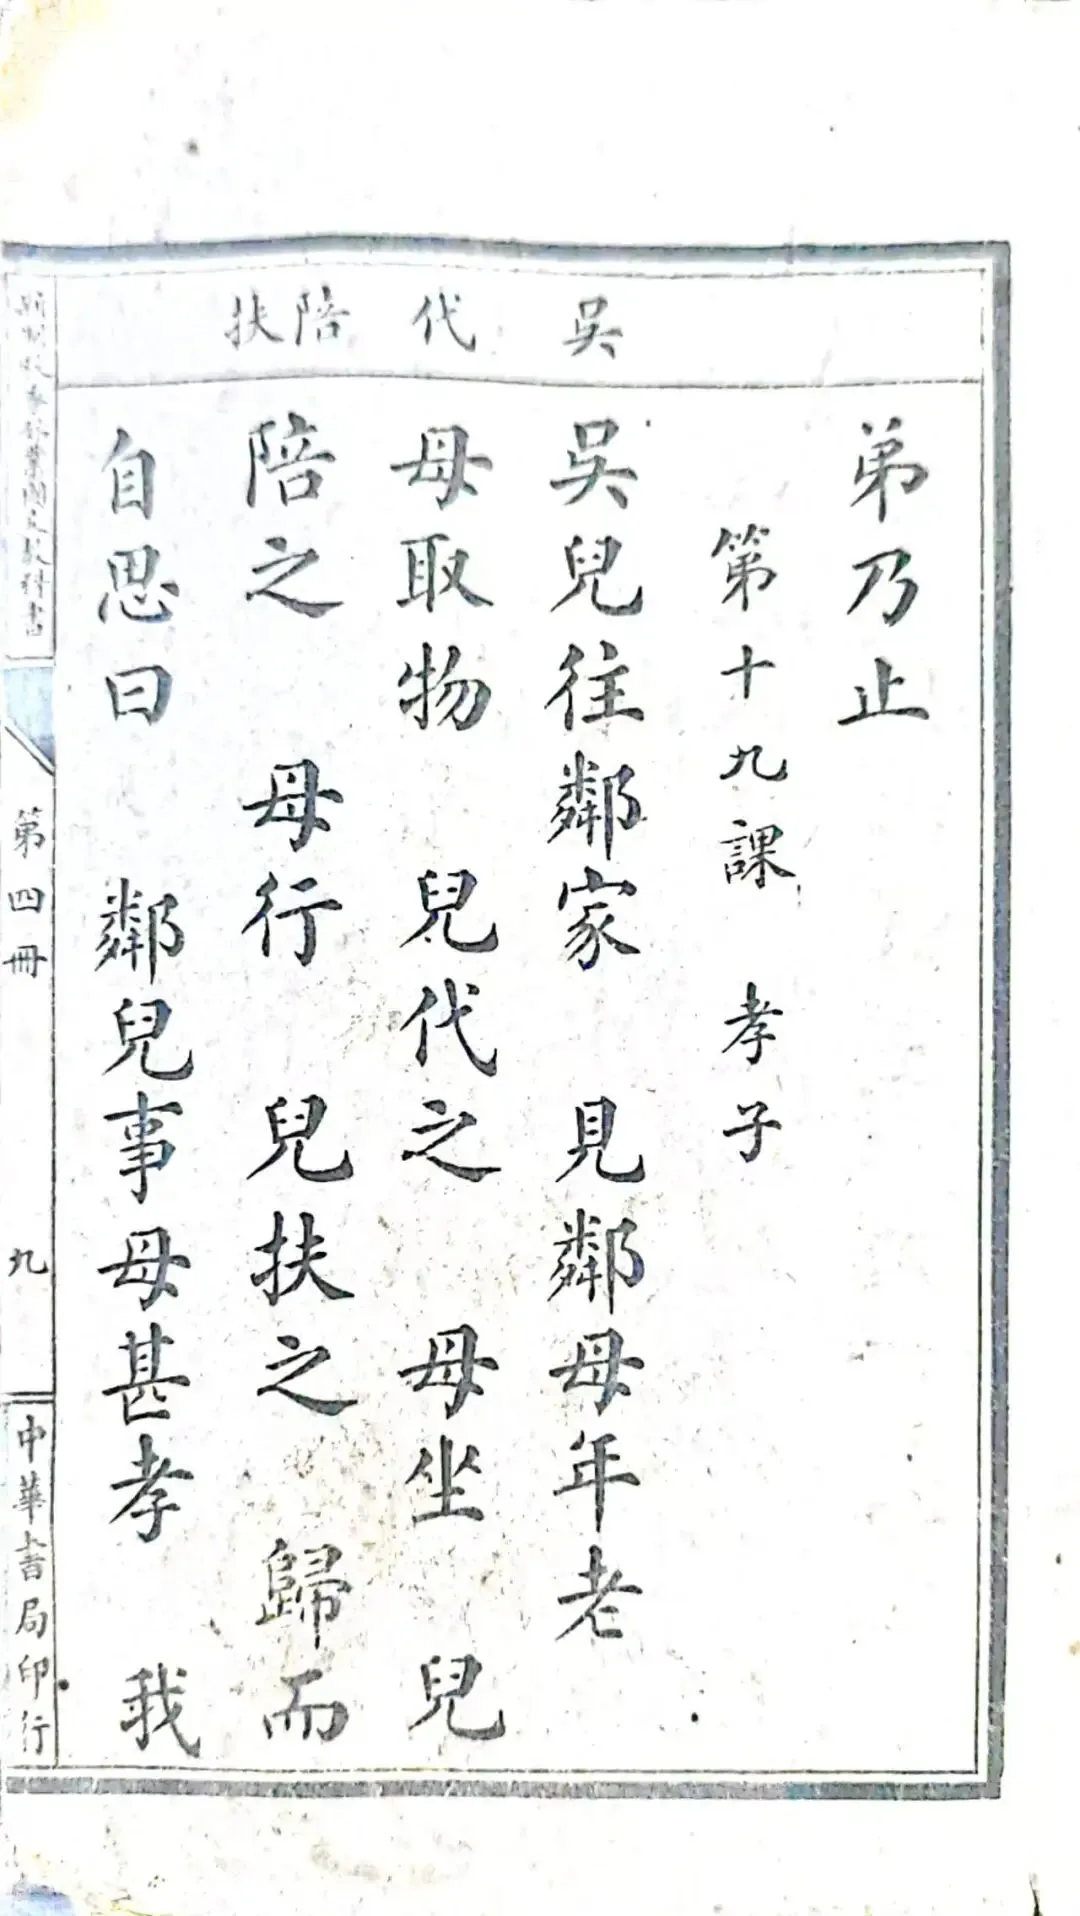 吳
代
陪扶
弟乃止
第十九課 孝子
吳兒往鄰家 見鄰母年老
母取物 兒代之 母坐 兒
陪之 母行 兒扶之 歸而
自思曰 鄰兒事母甚孝 我
新制秋季始業國文教科書
第四冊
九
中華書局印行